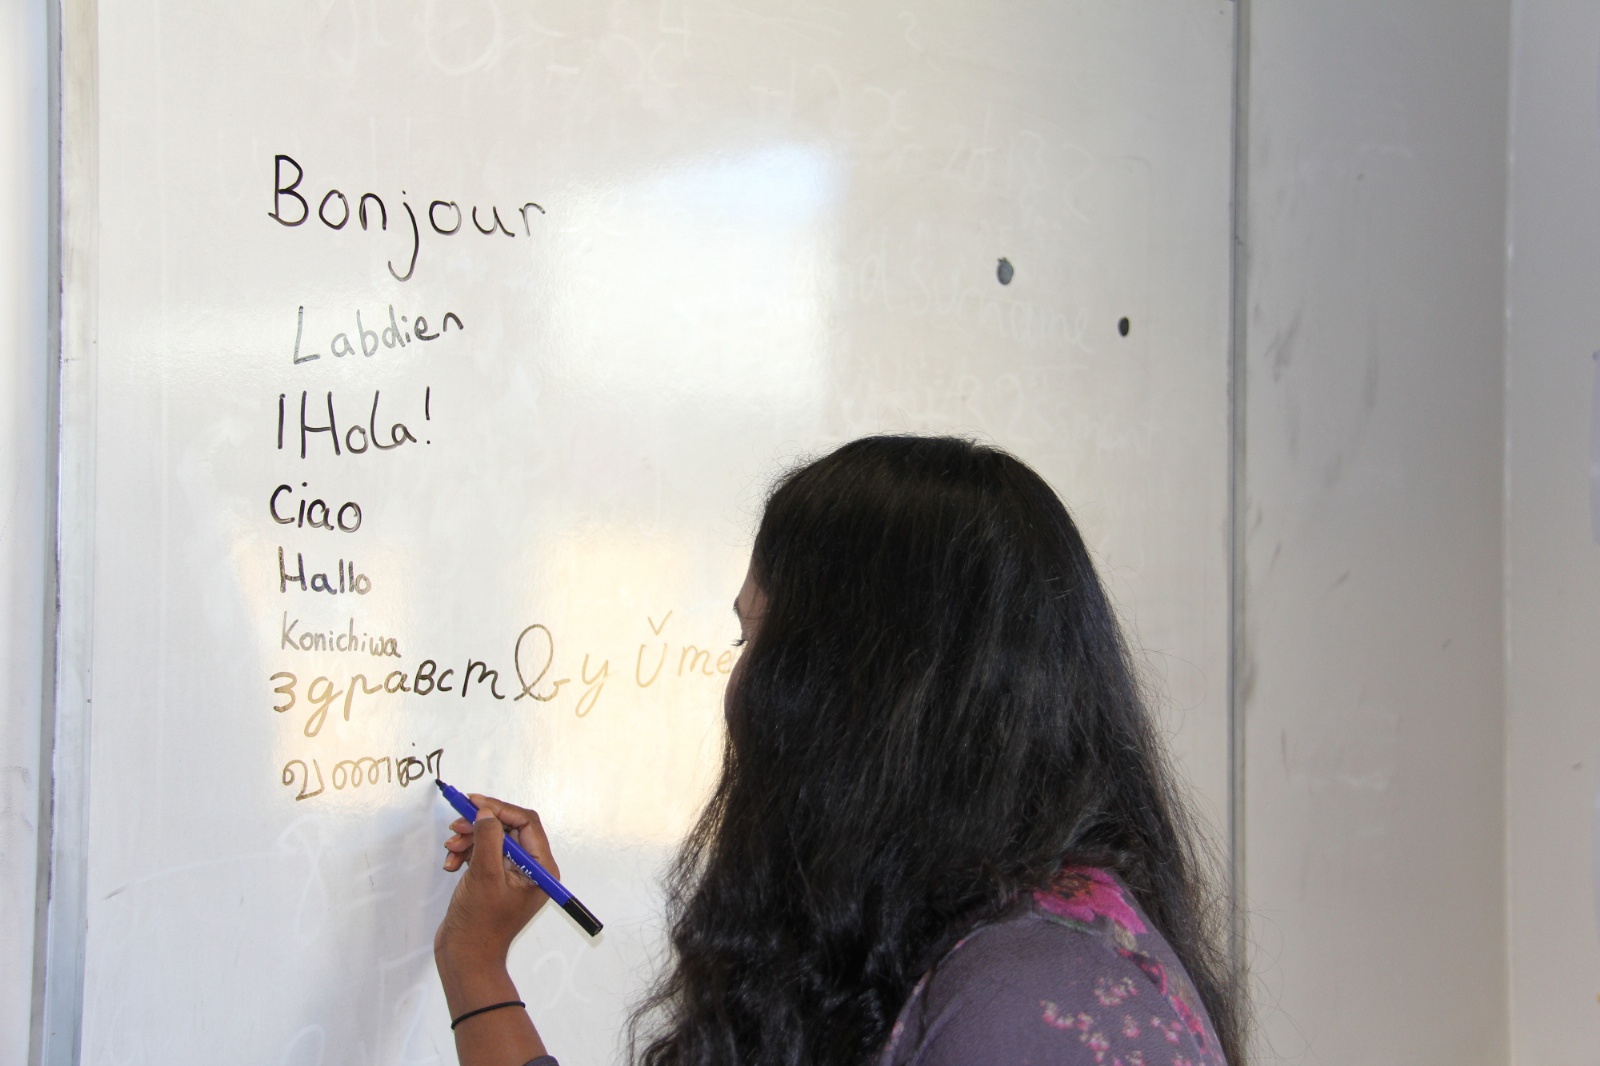 Bonjour
Labdien
¡Hola!
Ciao
Hallo
Konichiwa
Здравствуйте